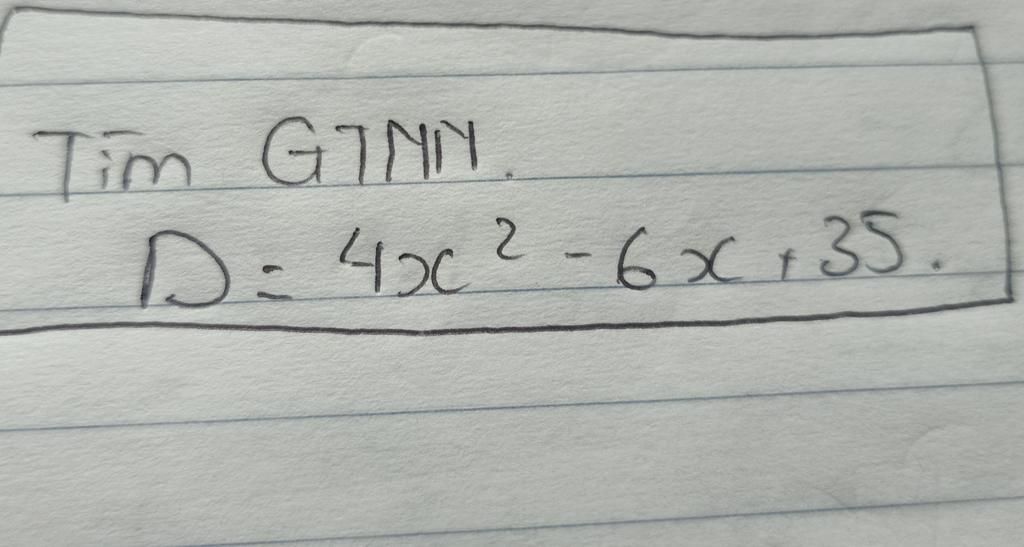 Tìm GTNN.
D = 4x² - 6x + 35.